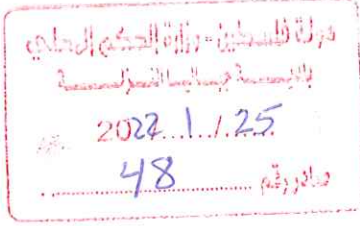 دولة فلسطين - وزارة الحكم المحلي
بلديـــة جباليا النـزلـــة
2022...1../.25
صادر رقم ............ 48 ............